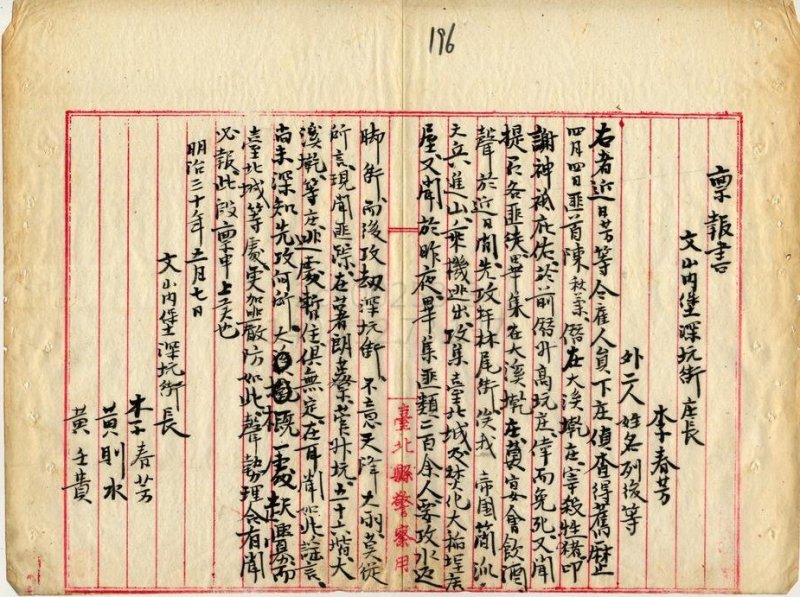 196
稟報書
文山內堡深坑街庄長
李春芳
外二人姓名列後等
右者近日芳等令雇人員下庄偵查得舊曆正
四月四日匪首陳秋菊僭在大溪墘庄宰殺牲猪叩
謝神祇庇佑前僭外高坑庄倖而免死又聞
提及各匪徒畢集在大溪墘庄宴會飲酒
聲於近日間先攻坪林尾街俟我 帝国簡派
天兵進山乘機逃出攻集臺北城及焚化大稻埕店
屋又聞於昨夜畢集匪類二百余人要攻水返
脚街而後攻刼深坑街不意天降大雨莫從
所言現聞匪踪在著朗藔菅外坑五十六堦大
溪墘等庄此處暫住俱無定在耳聞如此謠言
尚未深知先攻何所大概處起釁而
臺北城等處更加嚴防如此聲勢理合有聞
必報此段稟申上云也
明治三十年五月七日
文山內堡深坑街長
李春芳
黃則水
黃壬貴
臺北縣警察用